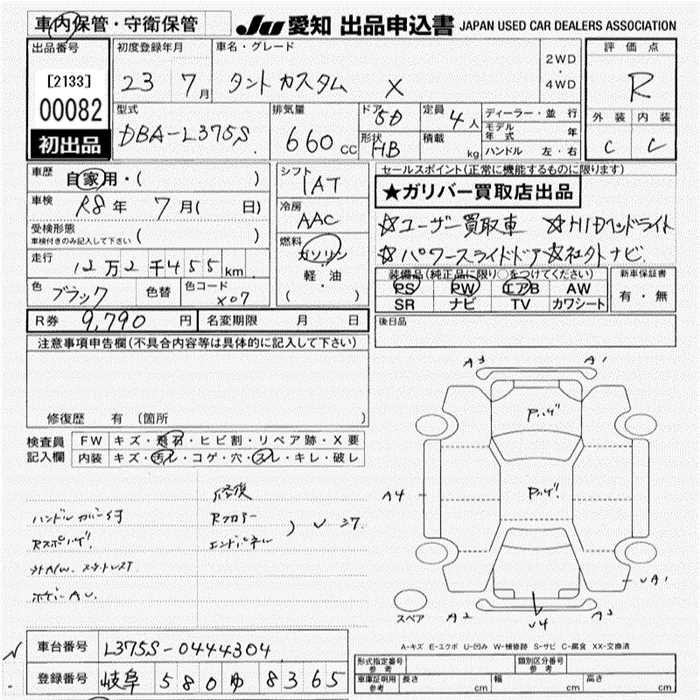 車内保管・守衛保管
JU 愛知 出品申込書 JAPAN USED CAR DEALERS ASSOCIATION
出品番号
[2133]
00082
初出品
初度登録年月
23 7月
車名・グレード
タントカスタム X
2WD
・
4WD
評価点
R
外装 内装
C C
型式
DBA-L375S
排気量
660 CC
ドア 5D
形状 HB
定員 4人
積載 kg
ディーラー・並行
モデル年式 年
ハンドル 左・右
車歴
自家用・( )
車検 R8年 7月( 日)
受検形態
車検付きのみ記入して下さい ( )
走行 12万2千455km
色 ブラック 色替 色コード X07
シフト
IAT
冷房
AAC
燃料
ガソリン
・
軽・油
( )
セールスポイント(正常に機能するものに限ります)
★ガリバー買取店出品
☆ユーザー買取車 ☆HIDヘッドライト
☆パワースライドドア ☆社外ナビ
装備品(純正品に限り○をつけてください)
PS PW エアB AW
SR ナビ TV カワシート
新車保証書
有・無
後日品
R券 9,790円 名変期限 月 日
注意事項申告欄(不具合内容等は具体的に記入して下さい)
修復歴 有(箇所 )
検査員
記入欄
FW キズ・飛石・ヒビ割・リペア跡・X要
内装 キズ・汚レ・コゲ・穴・スレ・キレ・破レ
修復
ハンドルカバー付
Rフロアー
エンドパネル
A3 A1
A4
UA1
A2 U4 A3
スペア
A-キズ E-エクボ U-凹み W-補修跡 S-サビ C-腐食 XX-交換済
車台番号 L375S-0444304
登録番号 岐阜 580 ゆ 8365
形式指定番号
参考
類別区分番号
参考
車庫証明用
参考
長さ cm 幅 cm 高さ cm